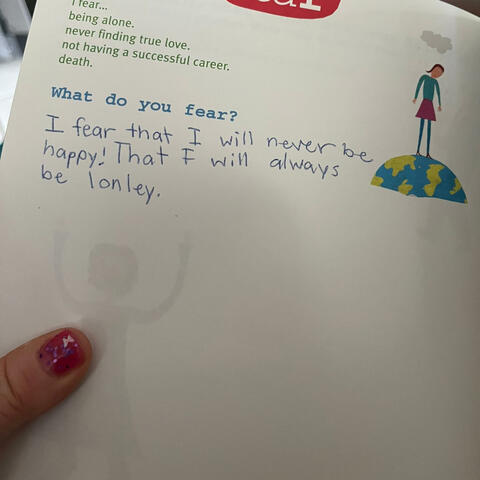 I fear...
being alone.
never finding true love.
not having a successful career.
death.
What do you fear?
I fear that I will never be
happy! That I will always
be lonley.